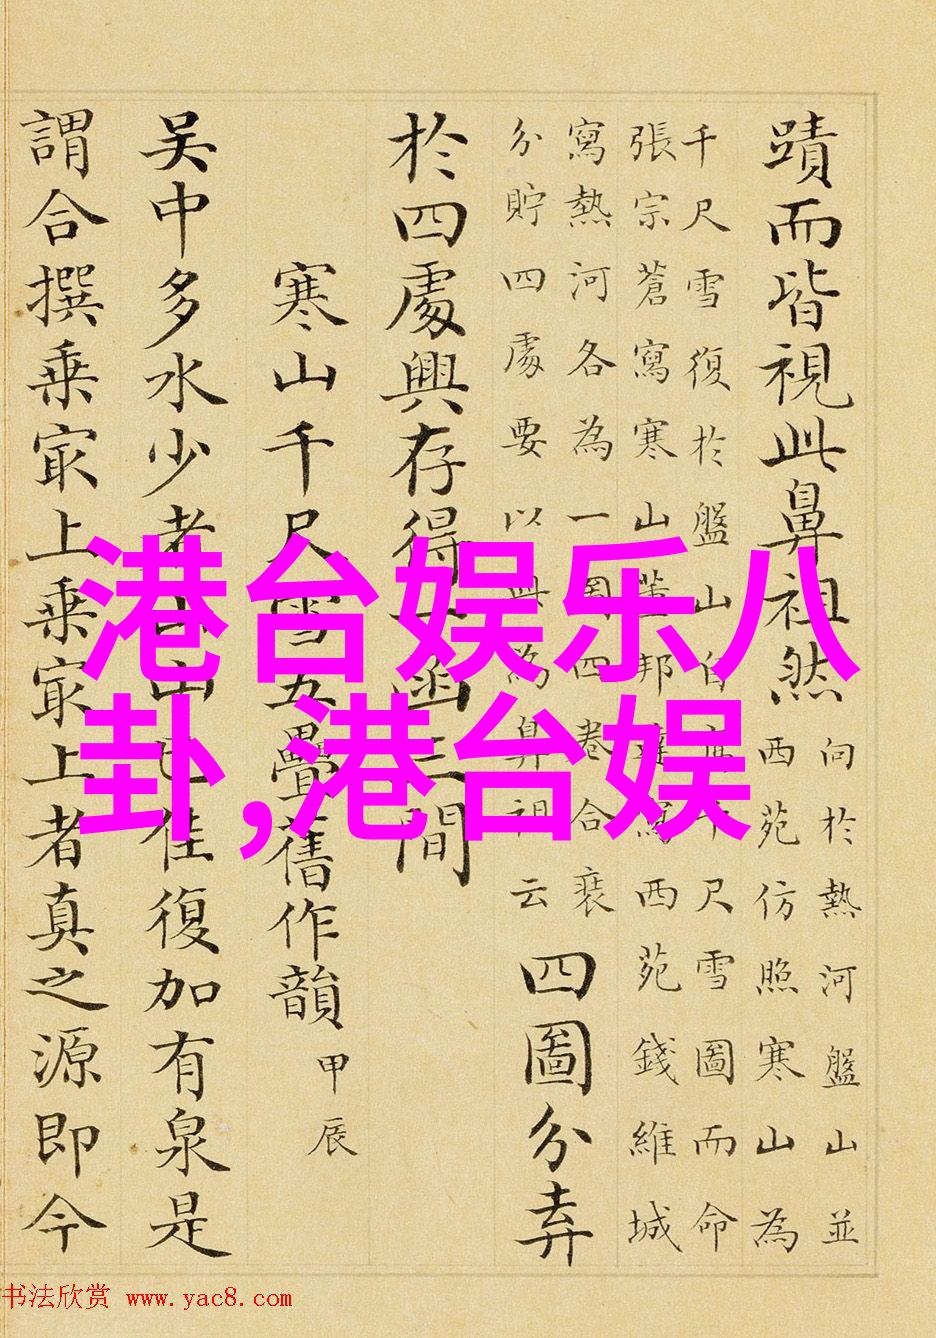 蹟而皆視此鼻祖然
向於熱河盤山並
西苑仿照寒山為
千尺雪復於盤山自畫千尺雪圖而命
張宗蒼寫寒山董邦達寫西苑錢維城
寫熱河各為一圖四卷合袠
分貯四處要以此為鼻祖云
四圖分弆
於四處興存得一函三間
寒山千尺雪五疊舊作韻 甲辰
吳中多水少者山山已佳復加有泉是
謂合撰乘㝡上乘㝡上者真之源即今
港台娱乐八
卦,港台娱
书法欣赏 www.yac8.com